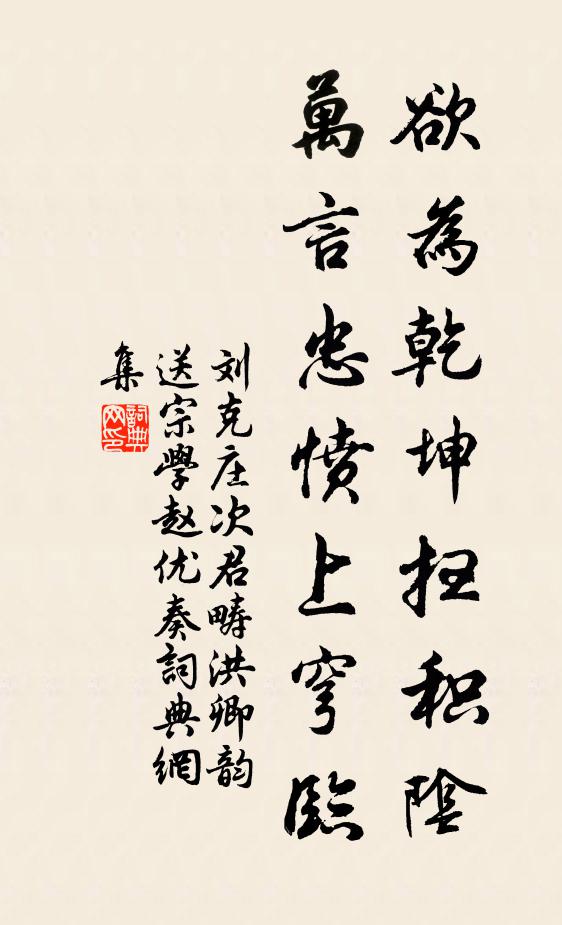 欲為乾坤扫积陰
萬言忠憤上穹臨
刘克庄次君畴洪卿韵
送宗學赵优奏詞典網
集
詞典网印